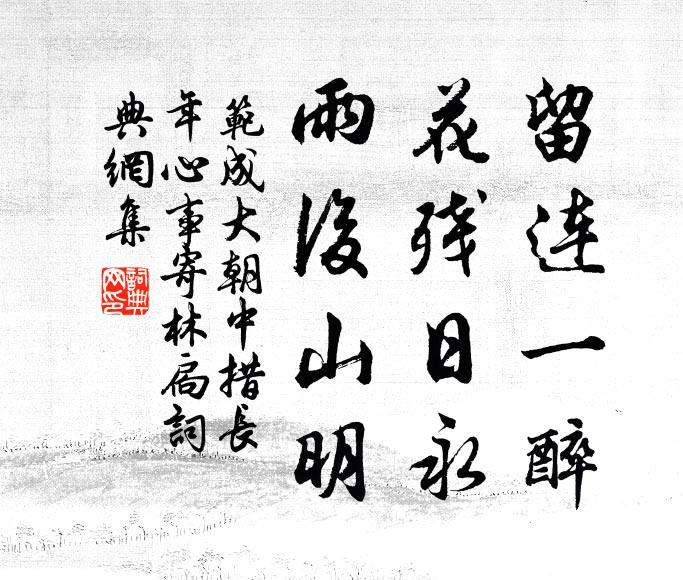 留連一醉
花殘日永
雨後山明
範成大朝中措長
年心事寄林扃詞
典網集
詞典
网印